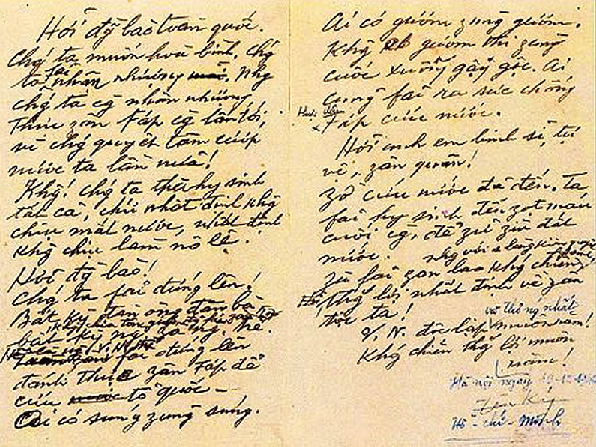 Hỡi đ̃g bào toàn quốc.
Chg ta muốn hoà bình, chg
ta fải nhân nhượng. Nhg
chg ta cg nhân nhượng
thực zân Fáp cg lấn tới,
vì chg quyết tâm cướp
nước ta lần nữa!
Khg! Chg ta thà hy sinh
tất cả, chứ nhất định khg
chịu mất nước, nhất định
khg chịu làm nô lệ.
Hỡi đg bào!
Chg ta fải đứng lên!
Bất kỳ đàn ông đàn bà
bất kỳ người già ng. trẻ.
fải đứng lên
đánh thực zân Fáp để
cứu tổ quốc -
Ai có súng zùng súng.
Ai có gươm zùng gươm.
Khg có gươm thì zùng
cuốc xuổng gậy gộc. Ai
cũng fải ra sức chống
Fáp cứu nước.
Hỡi anh em binh sĩ, tự
vệ, zân quân!
Zờ cứu nước đã đến. Ta
fải hy sinh đến zọt máu
cuối cg, để zữ zìn đất
nước.
Zù fải zan lao khg chiến
Thg lợi nhất định về zân
tộc ta!
và thống nhất
V. N. độc lập muôn năm!
Khg chiến thg lợi muôn
năm!
Hà nội ngày
Hồ - chí - Minh